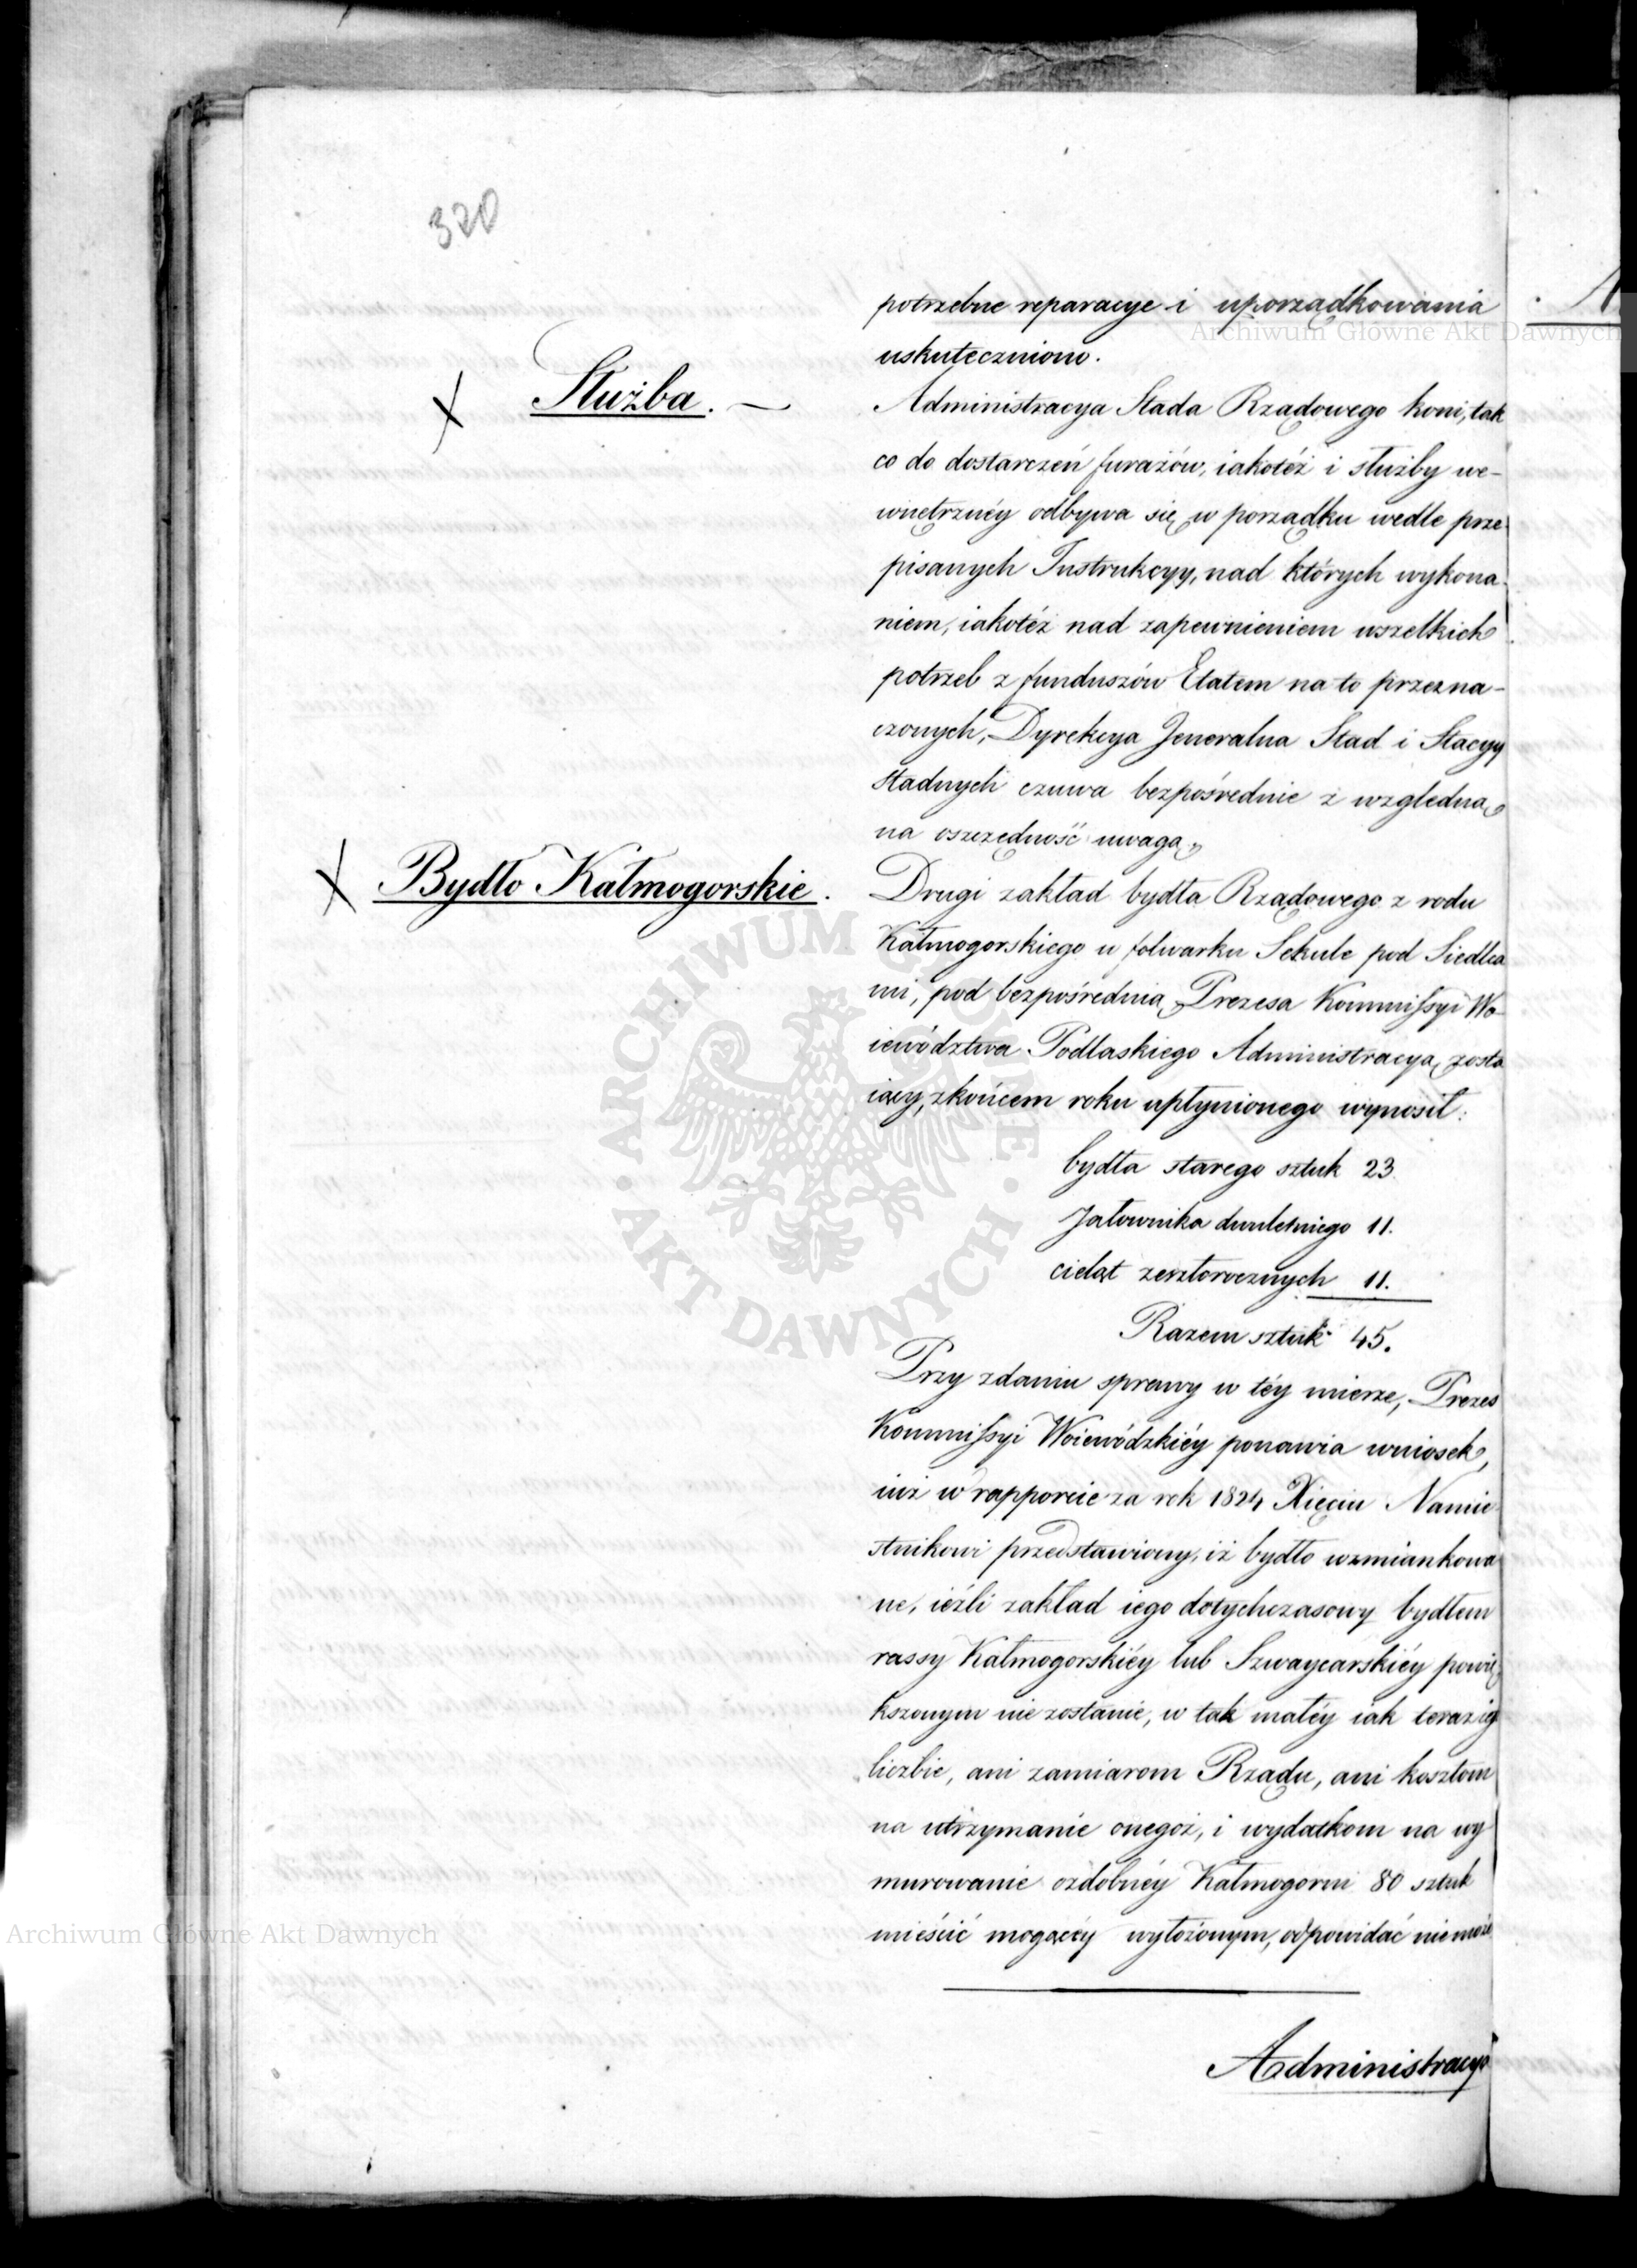 320
potrzebne reparacye i uporządkowania
uskuteczniono.
Służba. —
Administracya Stada Rządowego koni, tak
co do dostarczeń furażów, iakotéż i służby we-
wnętrznéy odbywa się w porządku wedle prze-
pisanych Instrukcyy, nad których wykona-
niem, iakotéż nad zapewnieniem wszelkich
potrzeb z funduszów Etatem na to przezna-
czonych, Dyrekcya Jeneralna Stad i Stacyy
stadnych czuwa bezpośrednie z względną
na oszczędność uwagą.
Bydło Kałmogorskie.
Drugi zakład bydła Rządowego z rodu
Kałmogorskiego w folwarku Sekule pod Siedlca
mi, pod bezpośrednią Prezesa Kommissyi Wo-
iewództwa Podlaskiego Administracyą zosta
iący, z końcem roku upłynionego wynosił:
bydła starego sztuk 23
Jałownika dwuletniego 11.
cieląt zeszłorocznych 11.
Razem sztuk 45.
Przy zdaniu sprawy w téy mierze, Prezes
Kommissyi Woiewódzkiéy ponawia wniosek,
iuż w rapporcie za rok 1824 Xięciu Namie
stnikowi przedstawiony, iż bydło wzmiankowa
ne, ieżli zakład iego dotychczasowy bydłem
rassy Kałmogorskiéy lub Szwaycarskiéy powię
kszonym nie zostanie, w tak małéy iak teraz iest
liczbie, ani zamiarom Rządu, ani kosztom
na utrzymanie onegoż, i wydatkom na wy
murowanie ozdobnéy Kałmogorni 80 sztuk
mieścić mogącéy wyłożonym, odpowidać nie może
Administracya
Archiwum Główne Akt Dawnych
Archiwum Główne Akt Dawnych
ARCHIWUM GŁÓWNE AKT DAWNYCH